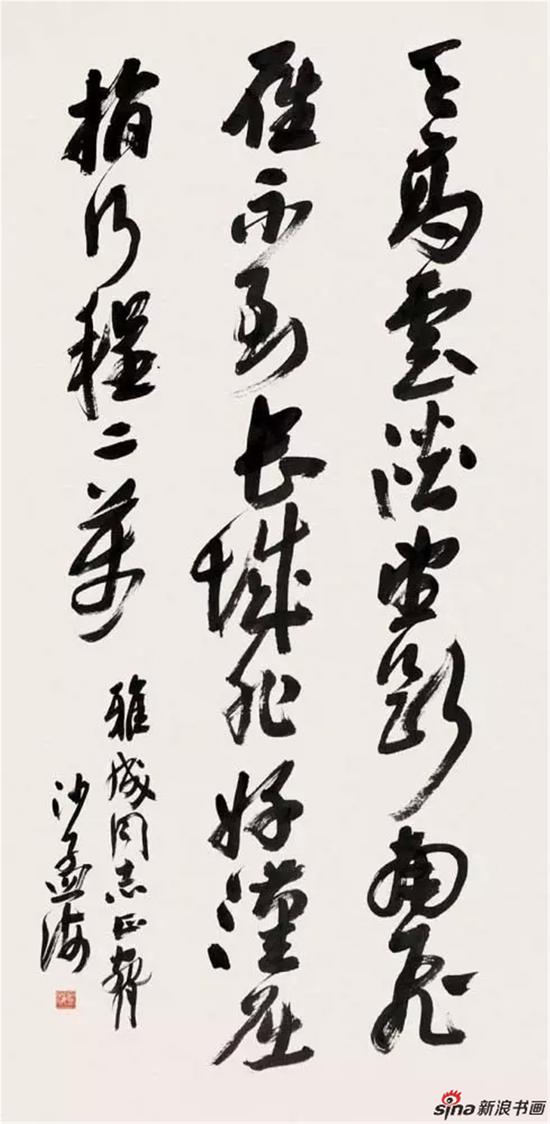 天高雲淡望斷南飛
雁不到長城非好漢屈
指行程二萬
雅成同志正
沙孟海
sina 新浪书画